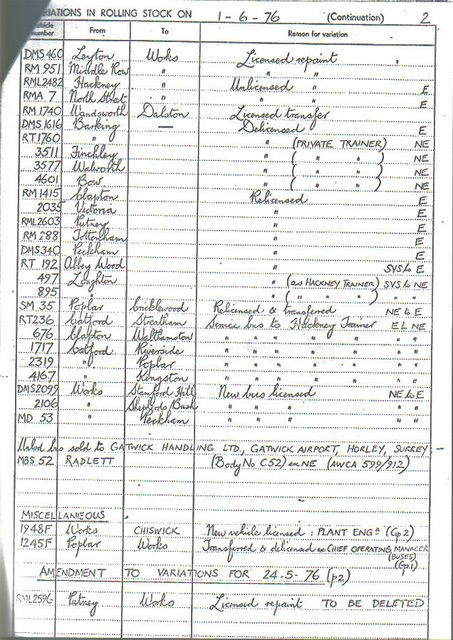 VARIATIONS IN ROLLING STOCK ON 1-6-76 (Continuation) 2
Vehicle Number From To Reason for variation
DMS 460 Leyton Works Licensed repaint
RM 951 Middle Row " " "
RML2482 Hackney " Unlicensed " E
RMA 7 North Street " " " E
RM 1740 Wandsworth Dalston Licensed transfer
DMS 1616 Barking — Delicensed E
RT 1760 " " (PRIVATE TRAINER) NE
3511 Finchley " ( " " ) NE
3577 Walworth " ( " " ) NE
4601 Bow " ( " " ) NE
RM 1415 Clapton Relicensed E
2035 Victoria " E
RML2603 Putney " E
RM 288 Tottenham " E
DMS 340 Peckham " E
RT 192 Abbey Wood " SYS to E
497 Loughton " (as HACKNEY TRAINER) SYS to NE
895 " " ( " " ) " "
SM 35 Poplar Cricklewood Relicensed & transferred NE to E
RT236 Catford Streatham Service bus to Hackney Trainer E to NE
676 Clapton Walthamstow " " " " " "
1717 Catford Riverside " " " " " "
2319 " Poplar " " " " " "
4167 " Kingston " " " " " "
DMS2099 Works Stamford Hill New bus licensed NE to E
2106 " Shepherds Bush " " " " "
MD 53 " Peckham " " " " "
bus sold to GATWICK HANDLING LTD, GATWICK AIRPORT, HORLEY, SURREY:-
MBS 52 RADLETT (Body No C52) ex NE (AWCA 599/912)
MISCELLANEOUS
1948F Works CHISWICK New vehicle licensed: PLANT ENGR (Gp 2)
1245F Poplar Works Transferred & delicensed ex CHIEF OPERATING MANAGER
(BUSES)
(Gp.1)
AMENDMENT TO VARIATIONS FOR 24-5-76 (p2)
RML2596 Putney Works Licensed repaint TO BE DELETED